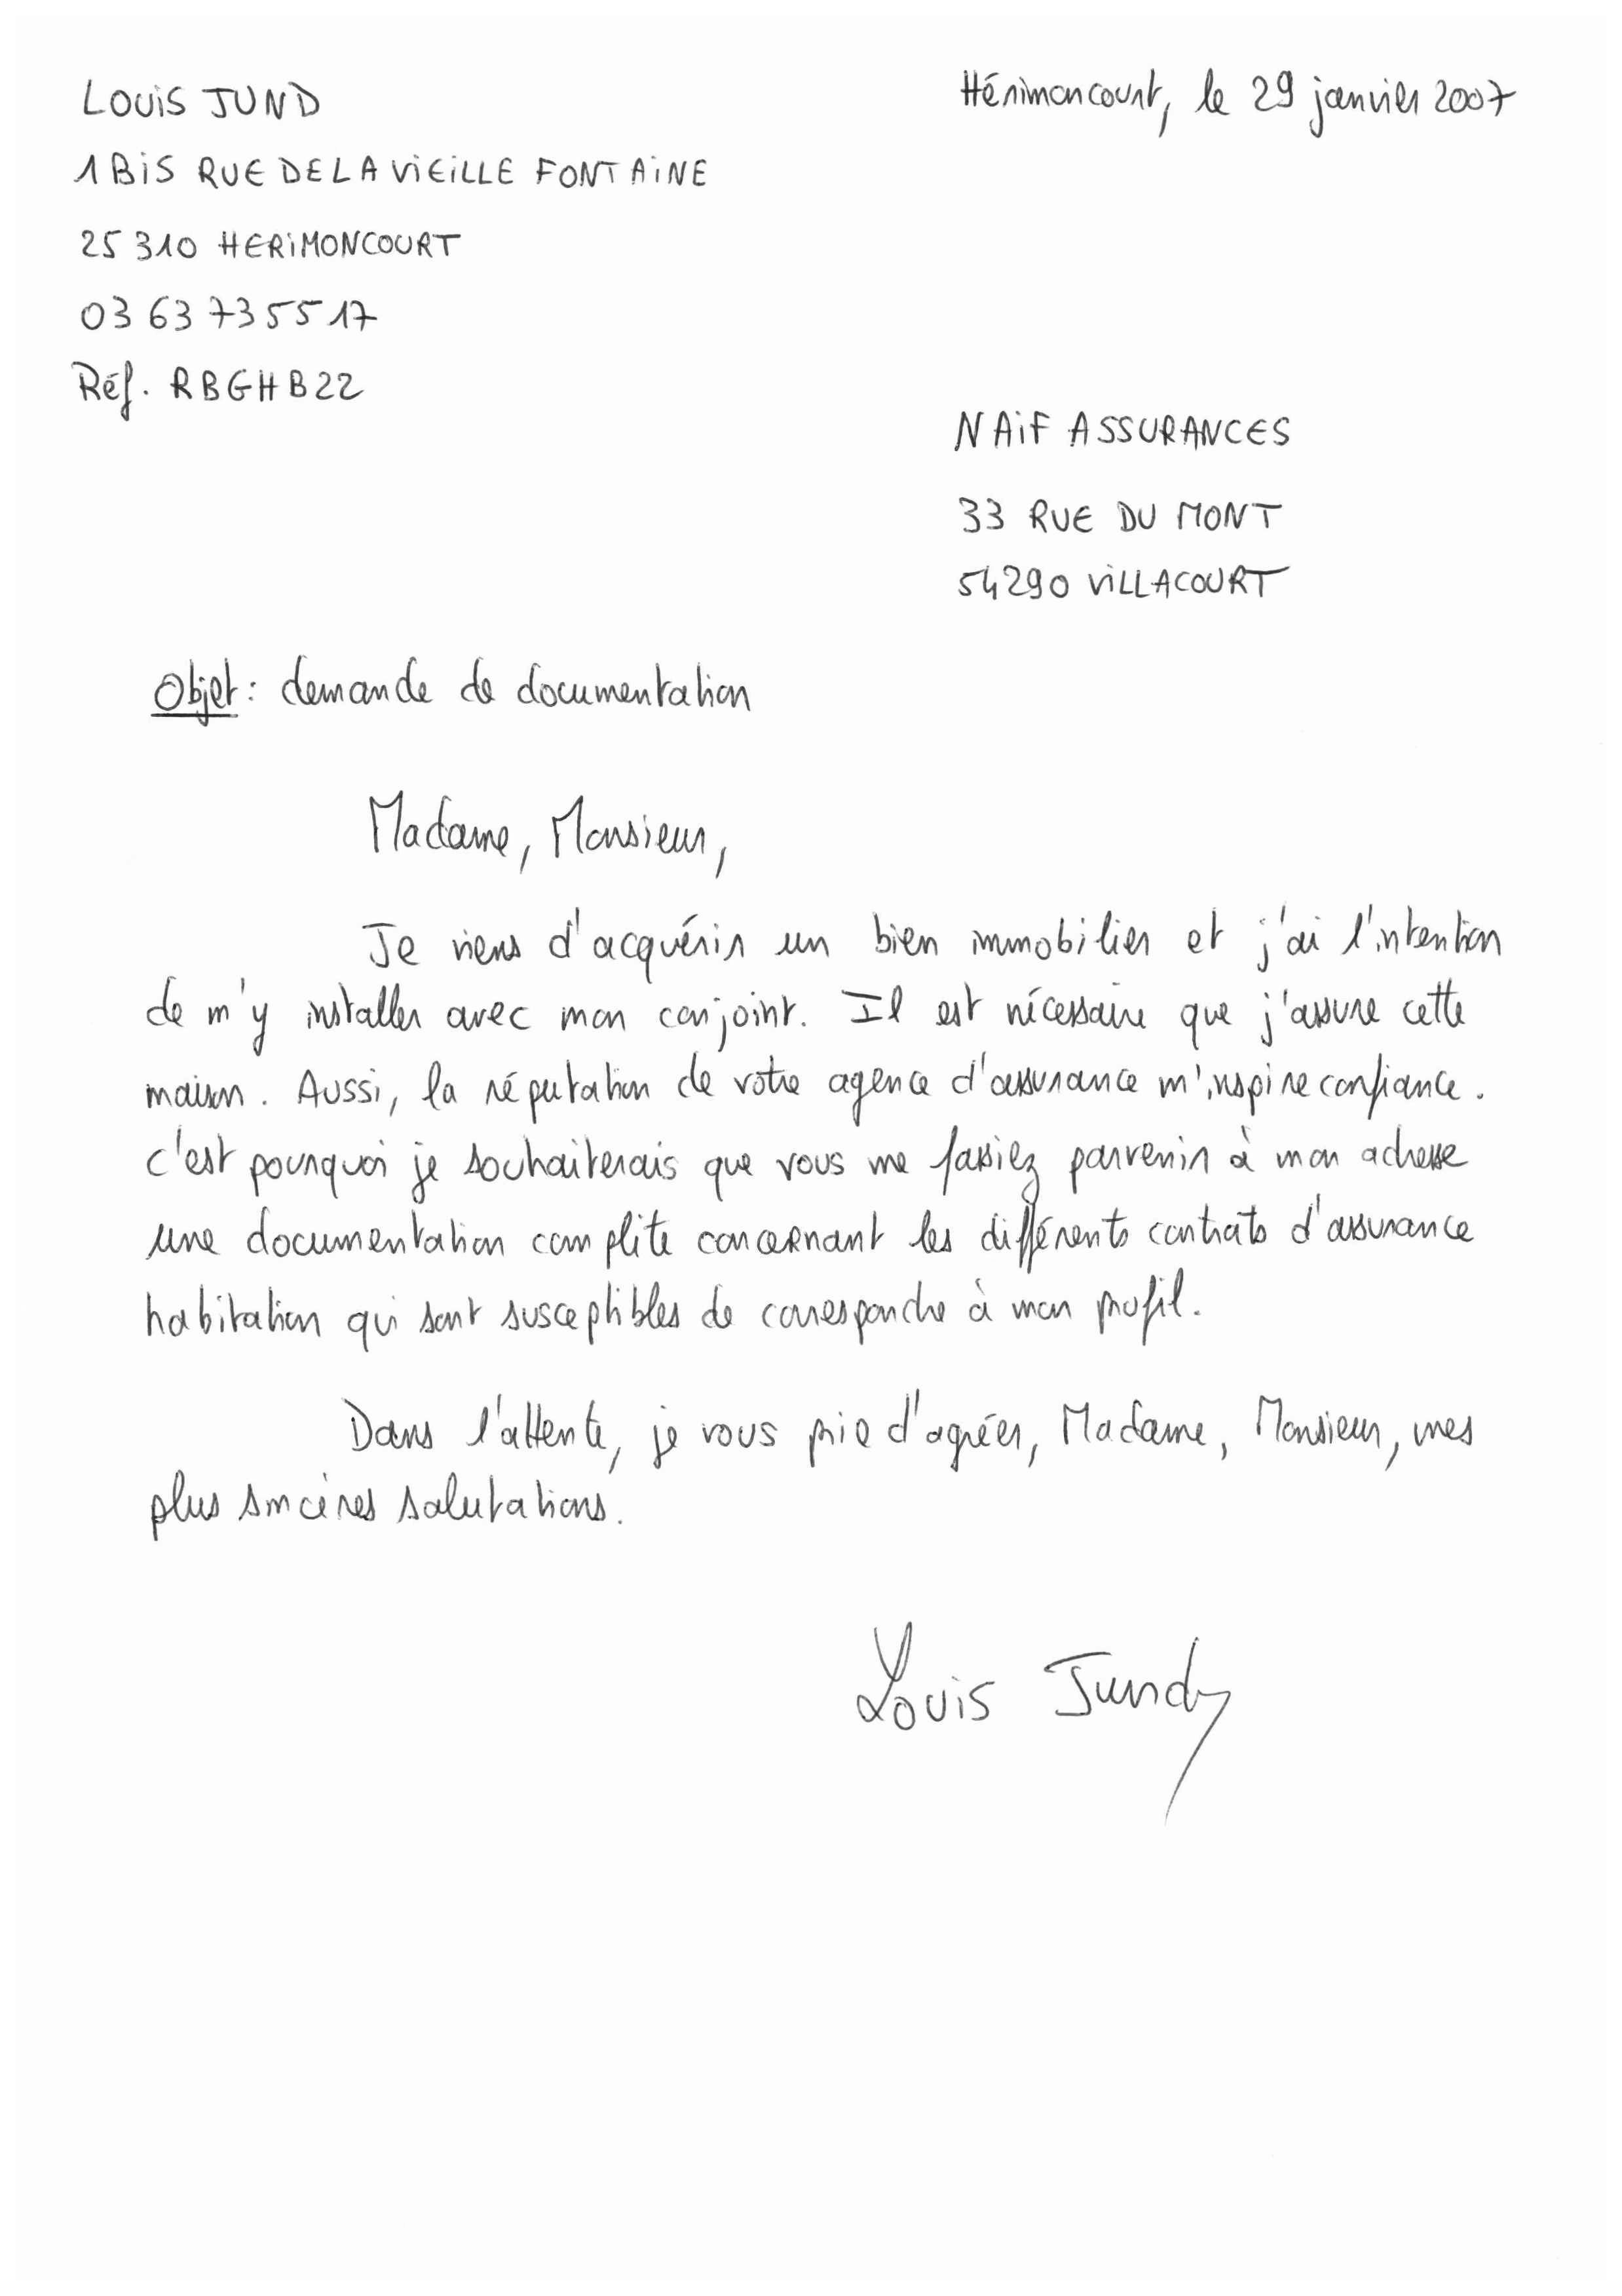 LOUIS JUND
1 BIS RUE DE LA VIEILLE FONTAINE
25 310 HERIMONCOURT
03 63 73 55 17
Réf. RBGHB22
Hérimoncourt, le 29 janvier 2007
NAIF ASSURANCES
33 RUE DU MONT
54290 VILLACOURT
Objet : demande de documentation
Madame, Monsieur,
Je viens d'acquérir un bien immobilier et j'ai l'intention
de m'y installer avec mon conjoint. Il est nécessaire que j'assure cette
maison. Aussi, la réputation de votre agence d'assurance m'inspire confiance.
C'est pourquoi je souhaiterais que vous me fassiez parvenir à mon adresse
une documentation complète concernant les différents contrats d'assurance
habitation qui sont susceptibles de correspondre à mon profil.
Dans l'attente, je vous prie d'agréer, Madame, Monsieur, mes
plus sincères salutations.
Louis Jund